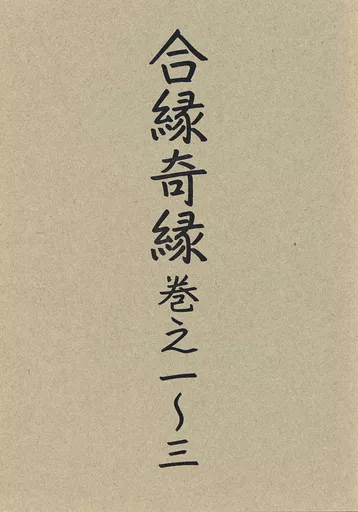 合縁奇縁 巻之一〜三